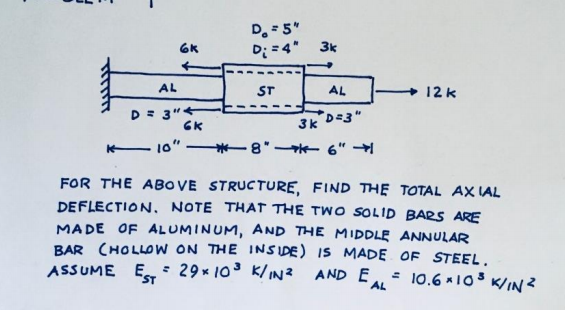 D₀ = 5"
6K Dᵢ = 4" 3K
AL ST AL 12K
D = 3" 6K 3K D=3"
10" 8" 6"
FOR THE ABOVE STRUCTURE, FIND THE TOTAL AXIAL
DEFLECTION. NOTE THAT THE TWO SOLID BARS ARE
MADE OF ALUMINUM, AND THE MIDDLE ANNULAR
BAR (HOLLOW ON THE INSIDE) IS MADE OF STEEL.
ASSUME E_ST = 29×10³ K/IN² AND E_AL = 10.6×10³ K/IN²